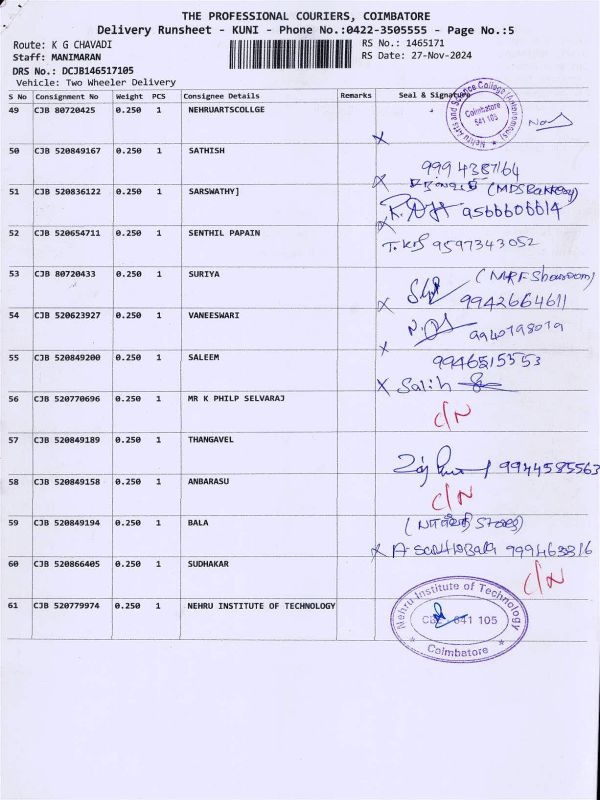 THE PROFESSIONAL COURIERS, COIMBATORE
Delivery Runsheet - KUNI - Phone No.:0422-3505555 - Page No.:5
Route: K G CHAVADI
RS No.: 1465171
Staff: MANIMARAN
RS Date: 27-Nov-2024
DRS No.: DCJB146517105
Vehicle: Two Wheeler Delivery
S No Consignment No Weight PCS Consignee Details Remarks Seal & Signature
49 CJB 80720425 0.250 1 NEHRUARTSCOLLGE
Nehru Arts and Science College (Autonomous)
Coimbatore
641 105
50 CJB 520849167 0.250 1 SATHISH
999 4387164
51 CJB 520836122 0.250 1 SARSWATHY]
9566606614
52 CJB 520654711 0.250 1 SENTHIL PAPAIN
9597343052
53 CJB 80720433 0.250 1 SURIYA
(MRF Showroom)
9942664611
54 CJB 520623927 0.250 1 VANEESWARI
9940798079
55 CJB 520849200 0.250 1 SALEEM
9946515553
X Salih
56 CJB 520770696 0.250 1 MR K PHILP SELVARAJ
C/N
57 CJB 520849189 0.250 1 THANGAVEL
9944585563
58 CJB 520849158 0.250 1 ANBARASU
C/N
59 CJB 520849194 0.250 1 BALA
60 CJB 520866405 0.250 1 SUDHAKAR
C/N
61 CJB 520779974 0.250 1 NEHRU INSTITUTE OF TECHNOLOGY
Nehru Institute of Technology
641 105
Coimbatore